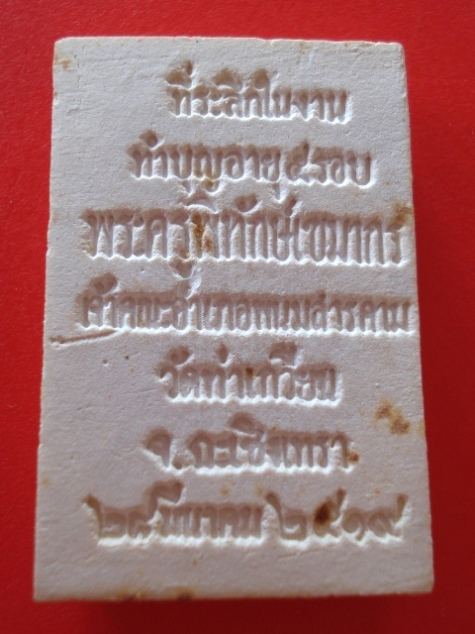 ที่ระลึกในงาน
ทำบุญอายุ ๕ รอบ
พระครูพิทักษ์เขมากร
เจ้าคณะอำเภอพนมสารคาม
วัดท่าเกวียน
จ. ฉะเชิงเทรา
มีนาคม